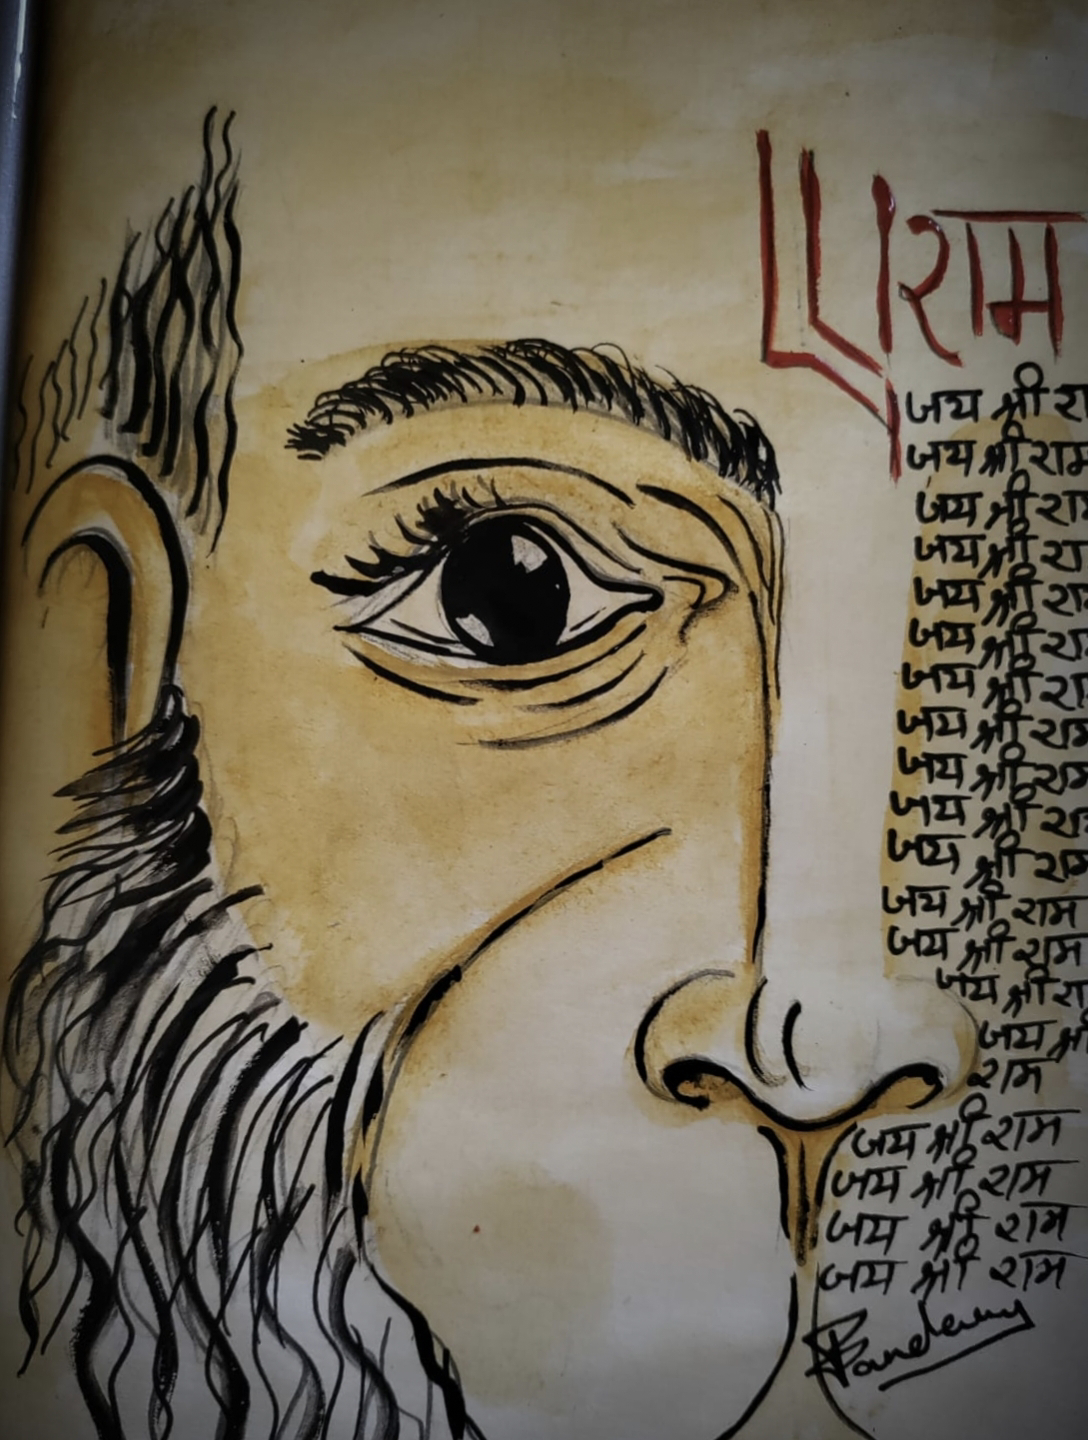 राम
जय श्री रा
जय श्री राम
जय श्री राम
जय श्री रा
जय श्री राम
जय श्री राम
जय श्री राम
जय श्री राम
जय श्री राम
जय श्री रा
जय श्री राम
जय श्री राम
जय श्री राम
जय श्री रा
जय श्री
राम
जय श्री राम
जय श्री राम
जय श्री राम
जय श्री राम